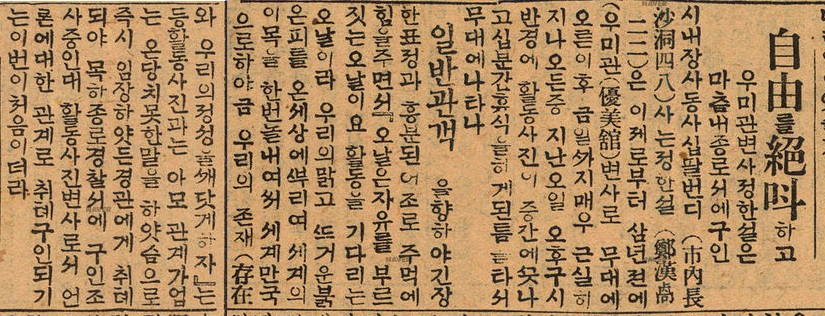 自由를絕叫하고
우미관변사정한설은
마츰내종로서에구인
시내장사동사십팔번디(市內長
沙洞四八)사는정한설(鄭漢卨
二二)은 이제로부터 삼년전에
(우미관(優美舘)변사로 무대에
오른이후 금일까지매우 근실히
지나오든중 지난오일 오후구시
반경에 활동사진이 중간에끗나
고십분간휴식을하게된틈을타서
무대에나타나
일반관객을향하야긴장
한표정과 흥분된어조로 주먹에
힘을주면서『오날은자유를 부르
짓는오날이요 활동을 기다리는
오날이라 우리의맑고 뜨거운붉
은피를 온세상에뿌리여 세계의
이목을 한번놀내여써 세계만국
으로하야금 우리의 존재(存在
와 우리의정성을깨닷게하자』는
등활동사진과는 아모 관계가업
는 온당치못한말을 하얏슴으로
즉시 임장하얏든경관에게 취톄
되야 목하종로경찰서에 구인조
사중인대 활동사진변사로서 언
론에대한 관계로 취톄구인되기
는이번이처음이더라